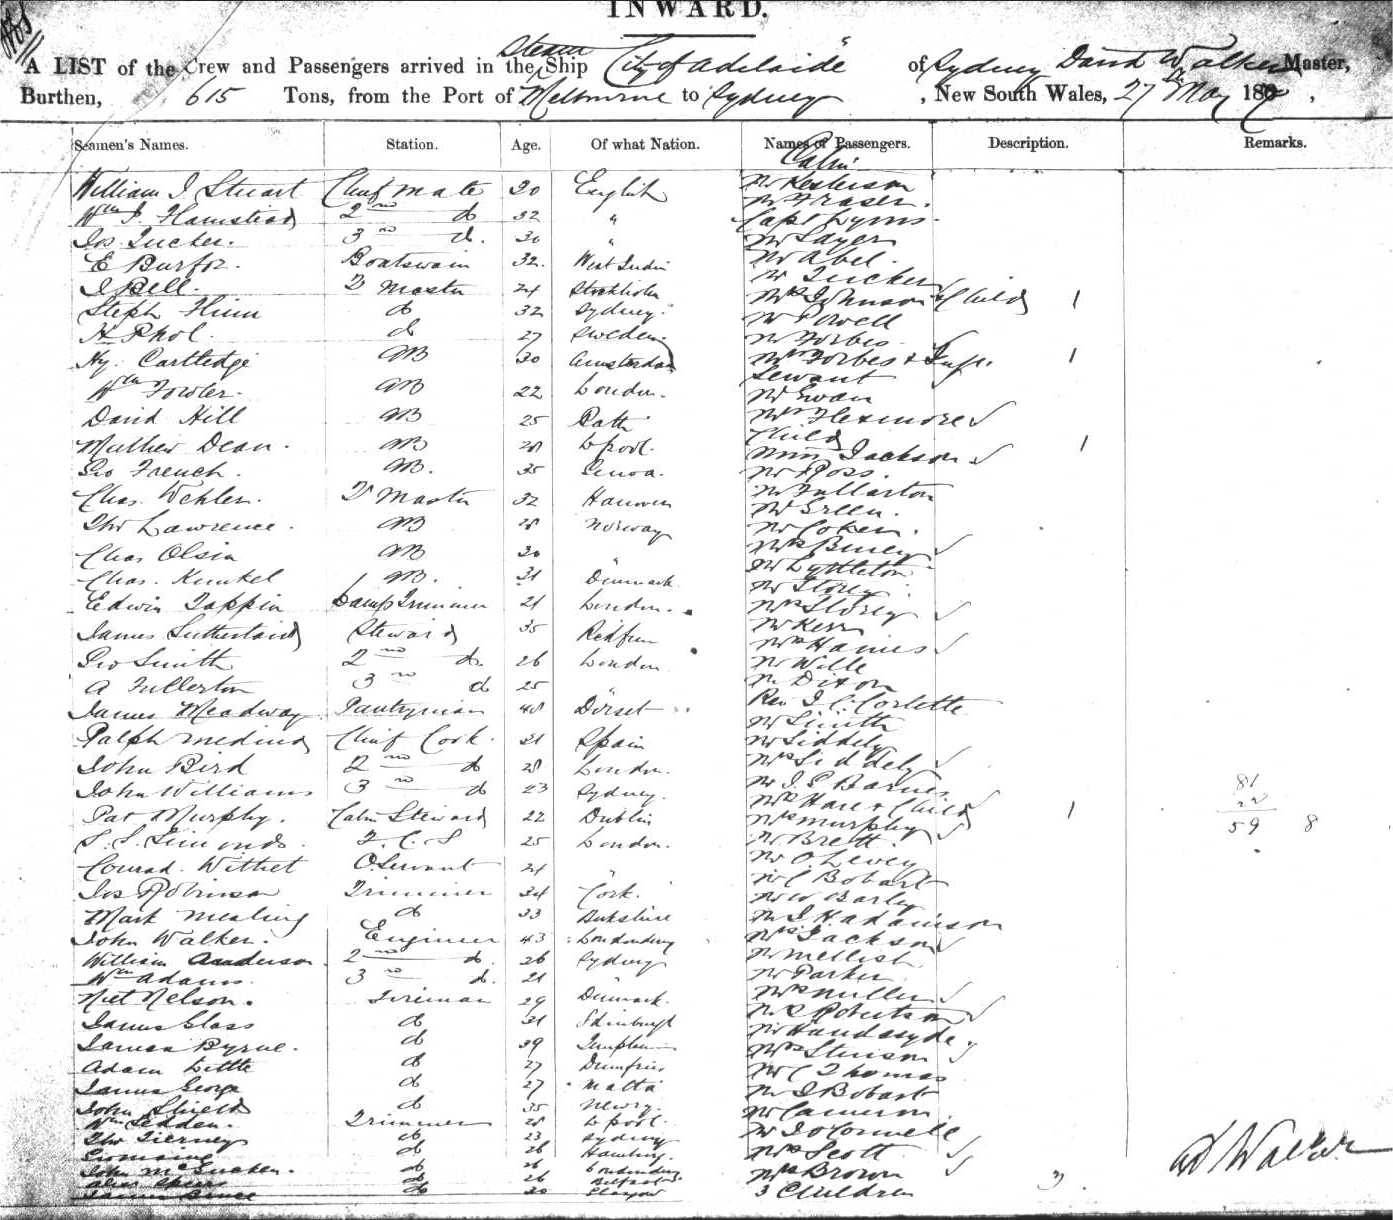 INWARD.
A LIST of the Crew and Passengers arrived in the Steam Ship "City of Adelaide" of Sydney David Walker Master,
Burthen, 615 Tons, from the Port of Melbourne to Sydney, New South Wales, 27 May 18
Seamen's Names. Station. Age. Of what Nation. Names of Passengers. Description. Remarks.
Cabin
William J Stuart Chief mate 30 English
Mr Fraser.
Wm J. Hamstead 2nd do 32 " Capt Lyons.
Jos. Tucker. 3rd do. 30 " Mr Sayer
E Burfoz. Boatswain 32. West Indies Mr Abel.
Mr Tucker
J Bell. Master 24 Stockholm Mrs Johnson + Child 1
Steph do 32 Sydney. Mr Powell
do 27 Sweden. Mr Forbes.
Hy. Cartledge AB 30 Amsterdam Mrs Forbes + Inft. 1
Servant
Wm Fowler. AB 22 London. Mr Ewan
David Hill AB 25 Bath Mrs Flexmore
Child 1
Mathew Dean. AB 28 L'pool. Miss Jackson
Geo French. AB. 35 Genoa. Mr Ross.
Mr Fullarton
Chas. Wehler. Master 32 Hanover Mr Green.
Thos Lawrence. AB 28 Norway Mr Coker.
Chas Olsin AB 30 "
Mr Lyttleton
Chas. Kunkel AB. 31 Denmark. Mr Storey
Edwin Tappin Lamp Trimmer 21 London. Mrs Storey
Mr Kerr
James Sutherland Steward 35 Mrs Haines
Geo Smith 2nd do. 26 London Mr Wille
A Fullerton 3rd do 25 Mr Dixon
Rev J. C. Corlette
James Meadway Pantryman 48 Dorset Mr Smith
Ralph Medina Chief Cook. 31 Spain Mr Siddely
Mrs Siddely
John Bird 2nd do 28 London. Mr J. S Barnes
John Williams 3rd do 23 Sydney. Mrs Hare + Child 1
81
22
59 8
Pat Murphy. Cabin Steward 22 Dublin Mrs Murphy
S. S. Simonds. F. C. S 25 London. Mr Brett.
Mr O. Lewey
Conrad. Withet O. Servant 21 " Mr C Bobart
Jos Robinson Trimmer 34 Cork. Mr W. Barly
Mark Mealing do 33 Berkshire Mr J. H. Adamson
John Walker. Engineer 43 Londonderry Mrs Jackson
William Anderson 2nd do. 26 Sydney Mr Mellish
Wm Adams. 3rd do. 21 " Mr Parker
Niel Nelson. Fireman 29 Denmark. Mrs Miller
Mr R Robertson
James Glass do 31 Edinburgh Mr Handasyde
James Byrne. do 39 Mrs Stinson
Adam Little do 27 Dumfries Mr C Thomas
James George do 27 Malta Mr J Bobart
John Shields do 35 Newry. Mr Cameron
Wm Sedden. Trimmer 28 L'pool. Mr J O'Connell
Thos Tierney do 23 Sydney
do 26 Hamburg. Mrs Scott
John McCracken. do 26 Londonderry Mrs Brown
do 26 Belfast 3 Children 3.
James do 30 Glasgow
D Walker